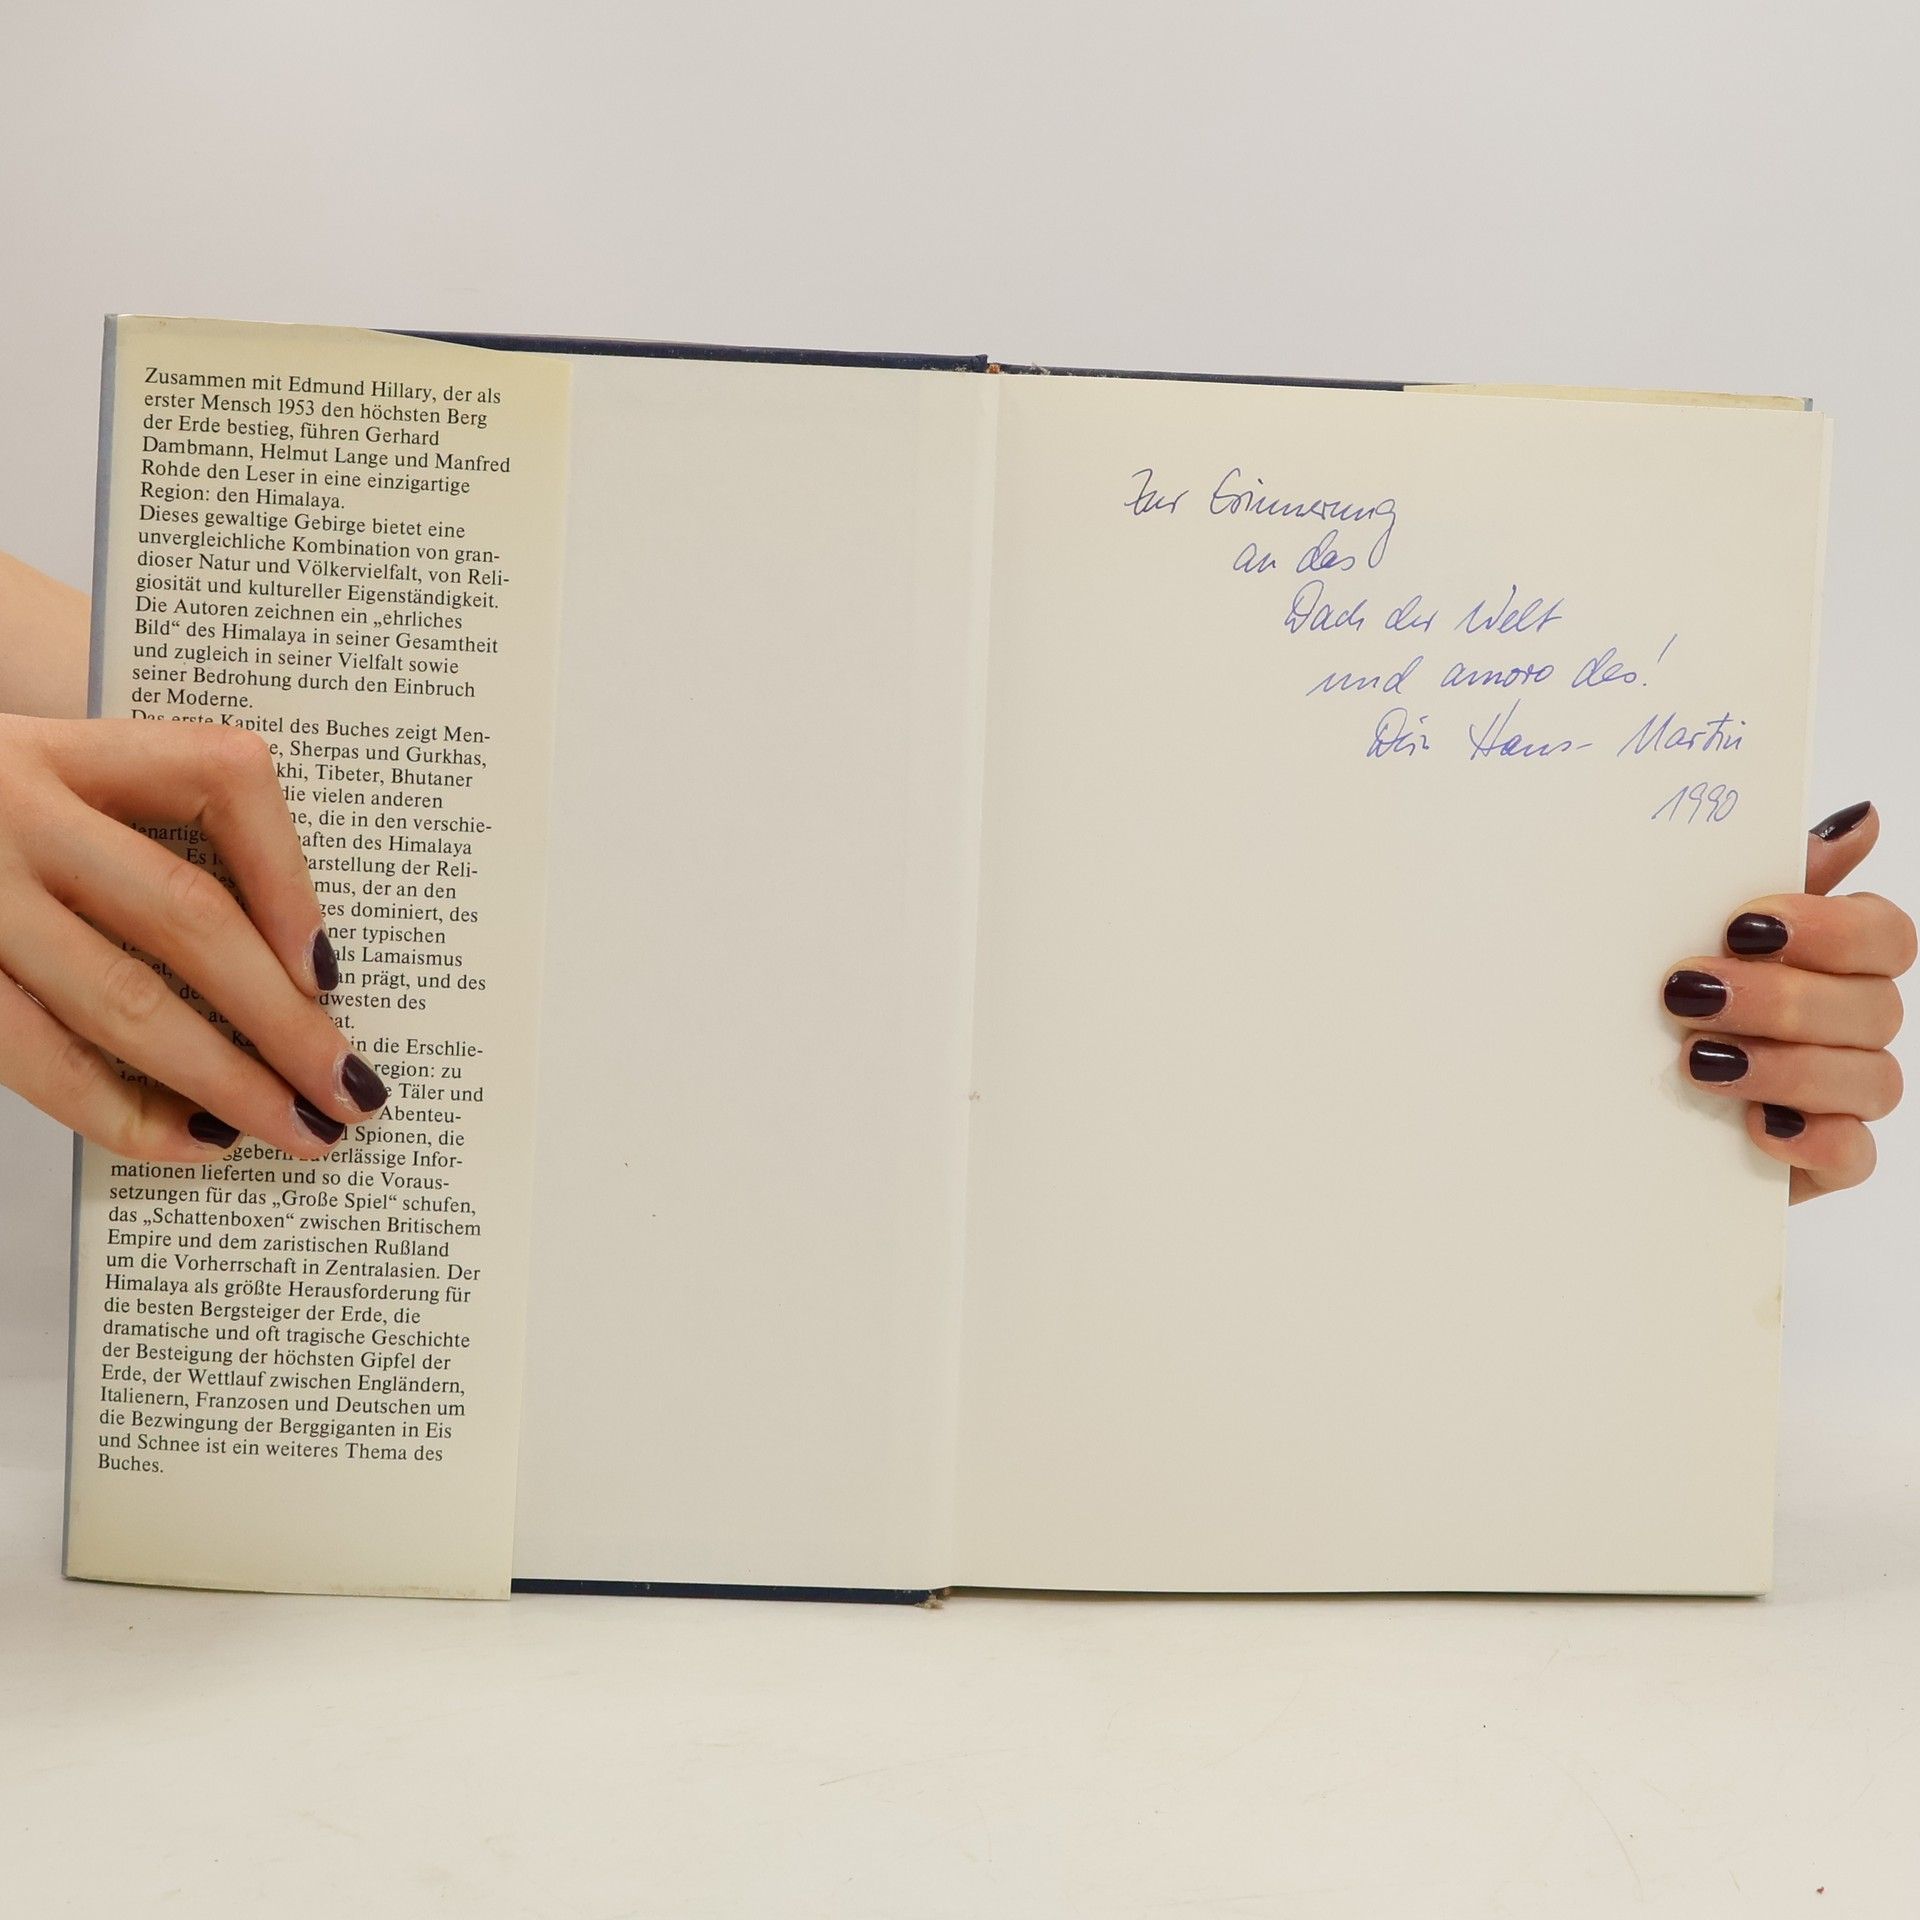 Zusammen mit Edmund Hillary, der als
erster Mensch 1953 den höchsten Berg
der Erde bestieg, führen Gerhard
Dambmann, Helmut Lange und Manfred
Rohde den Leser in eine einzigartige
Region: den Himalaya.
Dieses gewaltige Gebirge bietet eine
unvergleichliche Kombination von gran-
dioser Natur und Völkervielfalt, von Reli-
giosität und kultureller Eigenständigkeit.
Die Autoren zeichnen ein „ehrliches
Bild“ des Himalaya in seiner Gesamtheit
und zugleich in seiner Vielfalt sowie
seiner Bedrohung durch den Einbruch
der Moderne.
Das erste Kapitel des Buches zeigt Men-
Sherpas und Gurkhas,
Tibeter, Bhutaner
die vielen anderen
die in den verschie-
des Himalaya
der Reli-
der an den
dominiert, des
typischen
als Lamaismus
prägt, und des
des
in die Erschlie-
zu
Täler und
Abenteu-
Spionen, die
zuverlässige Infor-
mationen lieferten und so die Voraus-
setzungen für das „Große Spiel“ schufen,
das „Schattenboxen“ zwischen Britischem
Empire und dem zaristischen Rußland
um die Vorherrschaft in Zentralasien. Der
Himalaya als größte Herausforderung für
die besten Bergsteiger der Erde, die
dramatische und oft tragische Geschichte
der Besteigung der höchsten Gipfel der
Erde, der Wettlauf zwischen Engländern,
Italienern, Franzosen und Deutschen um
die Bezwingung der Berggiganten in Eis
und Schnee ist ein weiteres Thema des
Buches.
Zur Erinnerung
an das
Dach der Welt
und des!
Dein Hans-Martin
1990